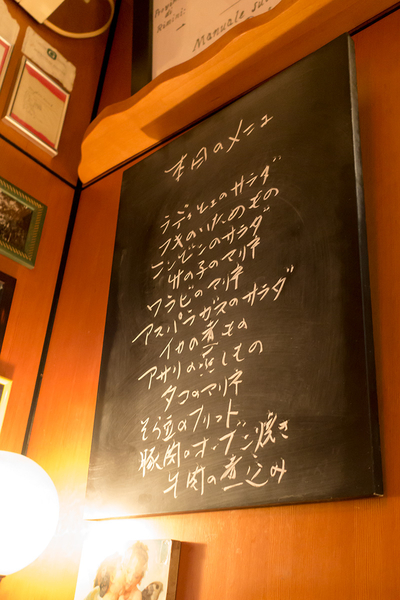 Manuale su
本日のメニュー
ラディッキョのサラダ
フキのいためもの
ニンジンのサラダ
竹の子のマリネ
ワラビのマリネ
アスパラガスのサラダ
イカの煮もの
アサリの蒸しもの
タコのマリネ
そら豆のフリット
豚肉のオーブン焼き
牛肉の煮込み